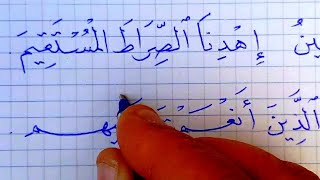 ـينُ إِهْدِنَا ٱلصِّرَاطَ المُسْتَقِيمَ .
الَّذِينَ أَنْعَمْتَ ـيهم .